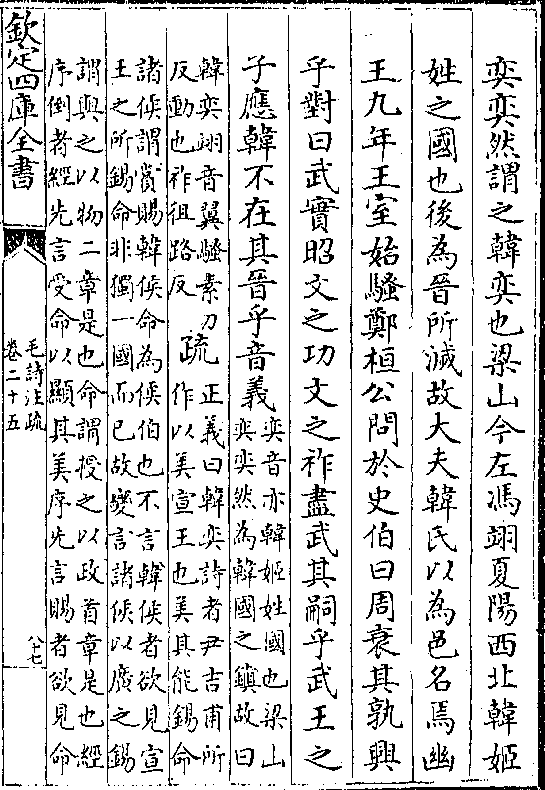 奕奕然謂之韓奕也梁山今左馮翊夏陽西北韓姬
姓之國也後為晉所滅故大夫韓氏以為邑名焉幽
王九年王室始騷鄭桓公問於史伯曰周衰其孰興
乎對曰武實昭文之功文之祚盡武其嗣乎武王之
子應韓不在其晉乎音義
奕音亦韓姬姓國也梁山
奕奕然為韓國之鎮故曰
韓奕翊音翼騷素刀
反動也祚徂路反
疏
正義曰韓奕詩者尹吉甫所
作以美宣王也美其能錫命
諸侯謂賞賜韓侯命為侯伯也不言韓侯者欲見宣
王之所錫命非獨一國而已故變言諸侯以廣之錫
謂與之以物二章是也命謂授之以政首章是也經
序倒者經先言受命以顯其美序先言賜者欲見命
欽定四庫全書
毛詩注疏
卷二十五
八十七